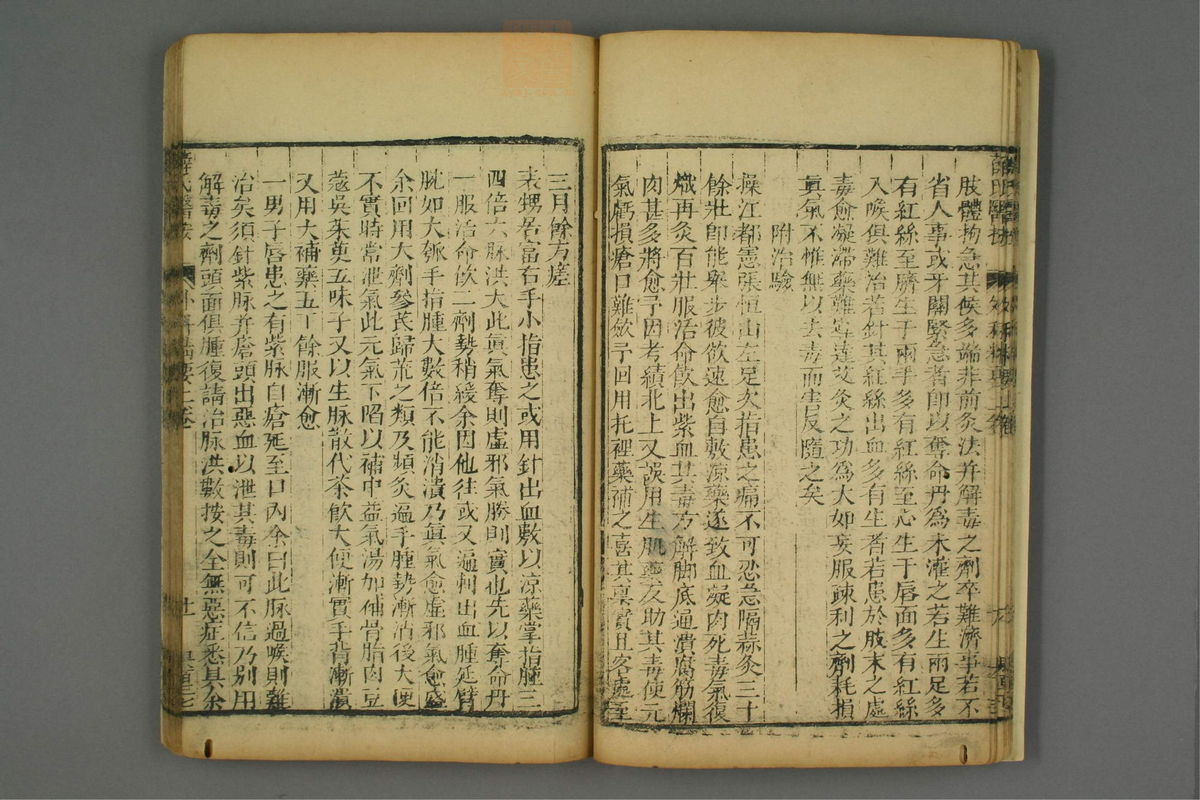 肢體拘急其候多端非前灸法并解毒之劑卒難濟事若不
省人事或牙關緊急者即以奪命丹爲末灌之若生兩足多
有紅絲至臍生于兩手多有紅絲至心生于唇面多有紅絲
入喉俱難治若針其紅絲出血多有生者若患於肢末之處
毒愈凝滯藥難導達艾灸之功爲大如妄服疎利之劑耗損
眞氣不惟無以去毒而害反隨之矣
附治驗
操江都憲張恒山左足次指患之痛不可忍急隔蒜灸三十
餘壯即能舉步彼欲速愈自敷涼藥遂致血凝肉死毒氣復
熾再灸百壯服活命飲出紫血其毒方解脚底通潰腐筋爛
肉甚多將愈予因考績北上又誤用生肌藥反助其毒使元
氣虧損瘡口難斂予回用托裡藥補之喜其稟實且客處至
三月餘方瘥
表甥居富右手小指患之或用針出血敷以涼藥掌指腫三
四倍六脉洪大此眞氣奪則虛邪氣勝則實也先以奪命丹
一服活命飲二劑勢稍緩余因他往或又遍刺出血腫延臂
腕如大瓠手指腫大數倍不能消潰乃眞氣愈虛邪氣愈盛
余回用大劑參芪歸朮之類及頻灸遍手腫勢漸消後大便
不實時常泄氣此元氣下陷以補中益氣湯加補骨脂肉豆
蔻吳茱萸五味子又以生脉散代茶飲大便漸實手背漸潰
又用大補藥五十餘服漸愈
一男子唇患之有紫脉自瘡延至口內余曰此脉過喉則難
治矣須針紫脉并瘡頭出惡血以泄其毒則可不信乃別用
解毒之劑頭面俱腫復請治脉洪數按之全無惡症悉具余
薛氏醫按
外科樞要上卷
十一